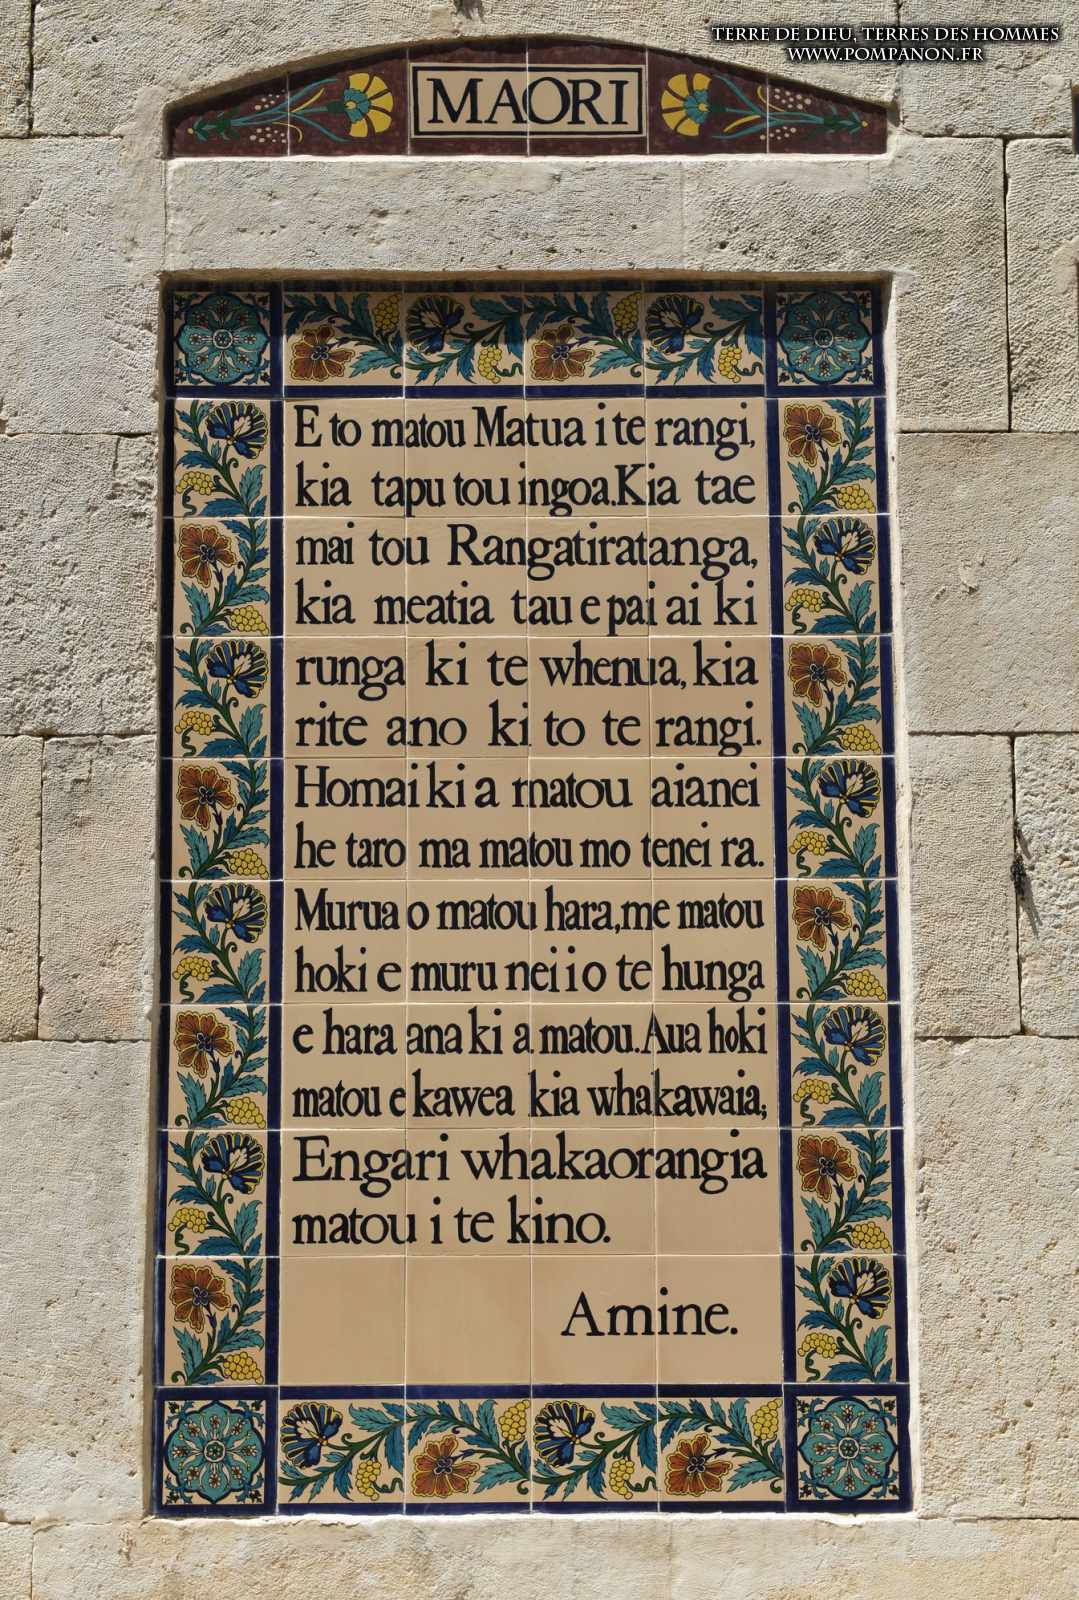 TERRE DE DIEU, TERRES DES HOMMES
WWW.POMPANON.FR
MAORI
E to matou Matua i te rangi,
kia tapu tou ingoa. Kia tae
mai tou Rangatiratanga,
kia meatia tau e pai ai ki
runga ki te whenua, kia
rite ano ki to te rangi.
Homai ki a matou aianei
he taro ma matou mo tenei ra.
Murua o matou hara, me matou
hoki e muru nei i o te hunga
e hara ana ki a matou. Aua hoki
matou e kawea kia whakawaia;
Engari whakaorangia
matou i te kino.
Amine.